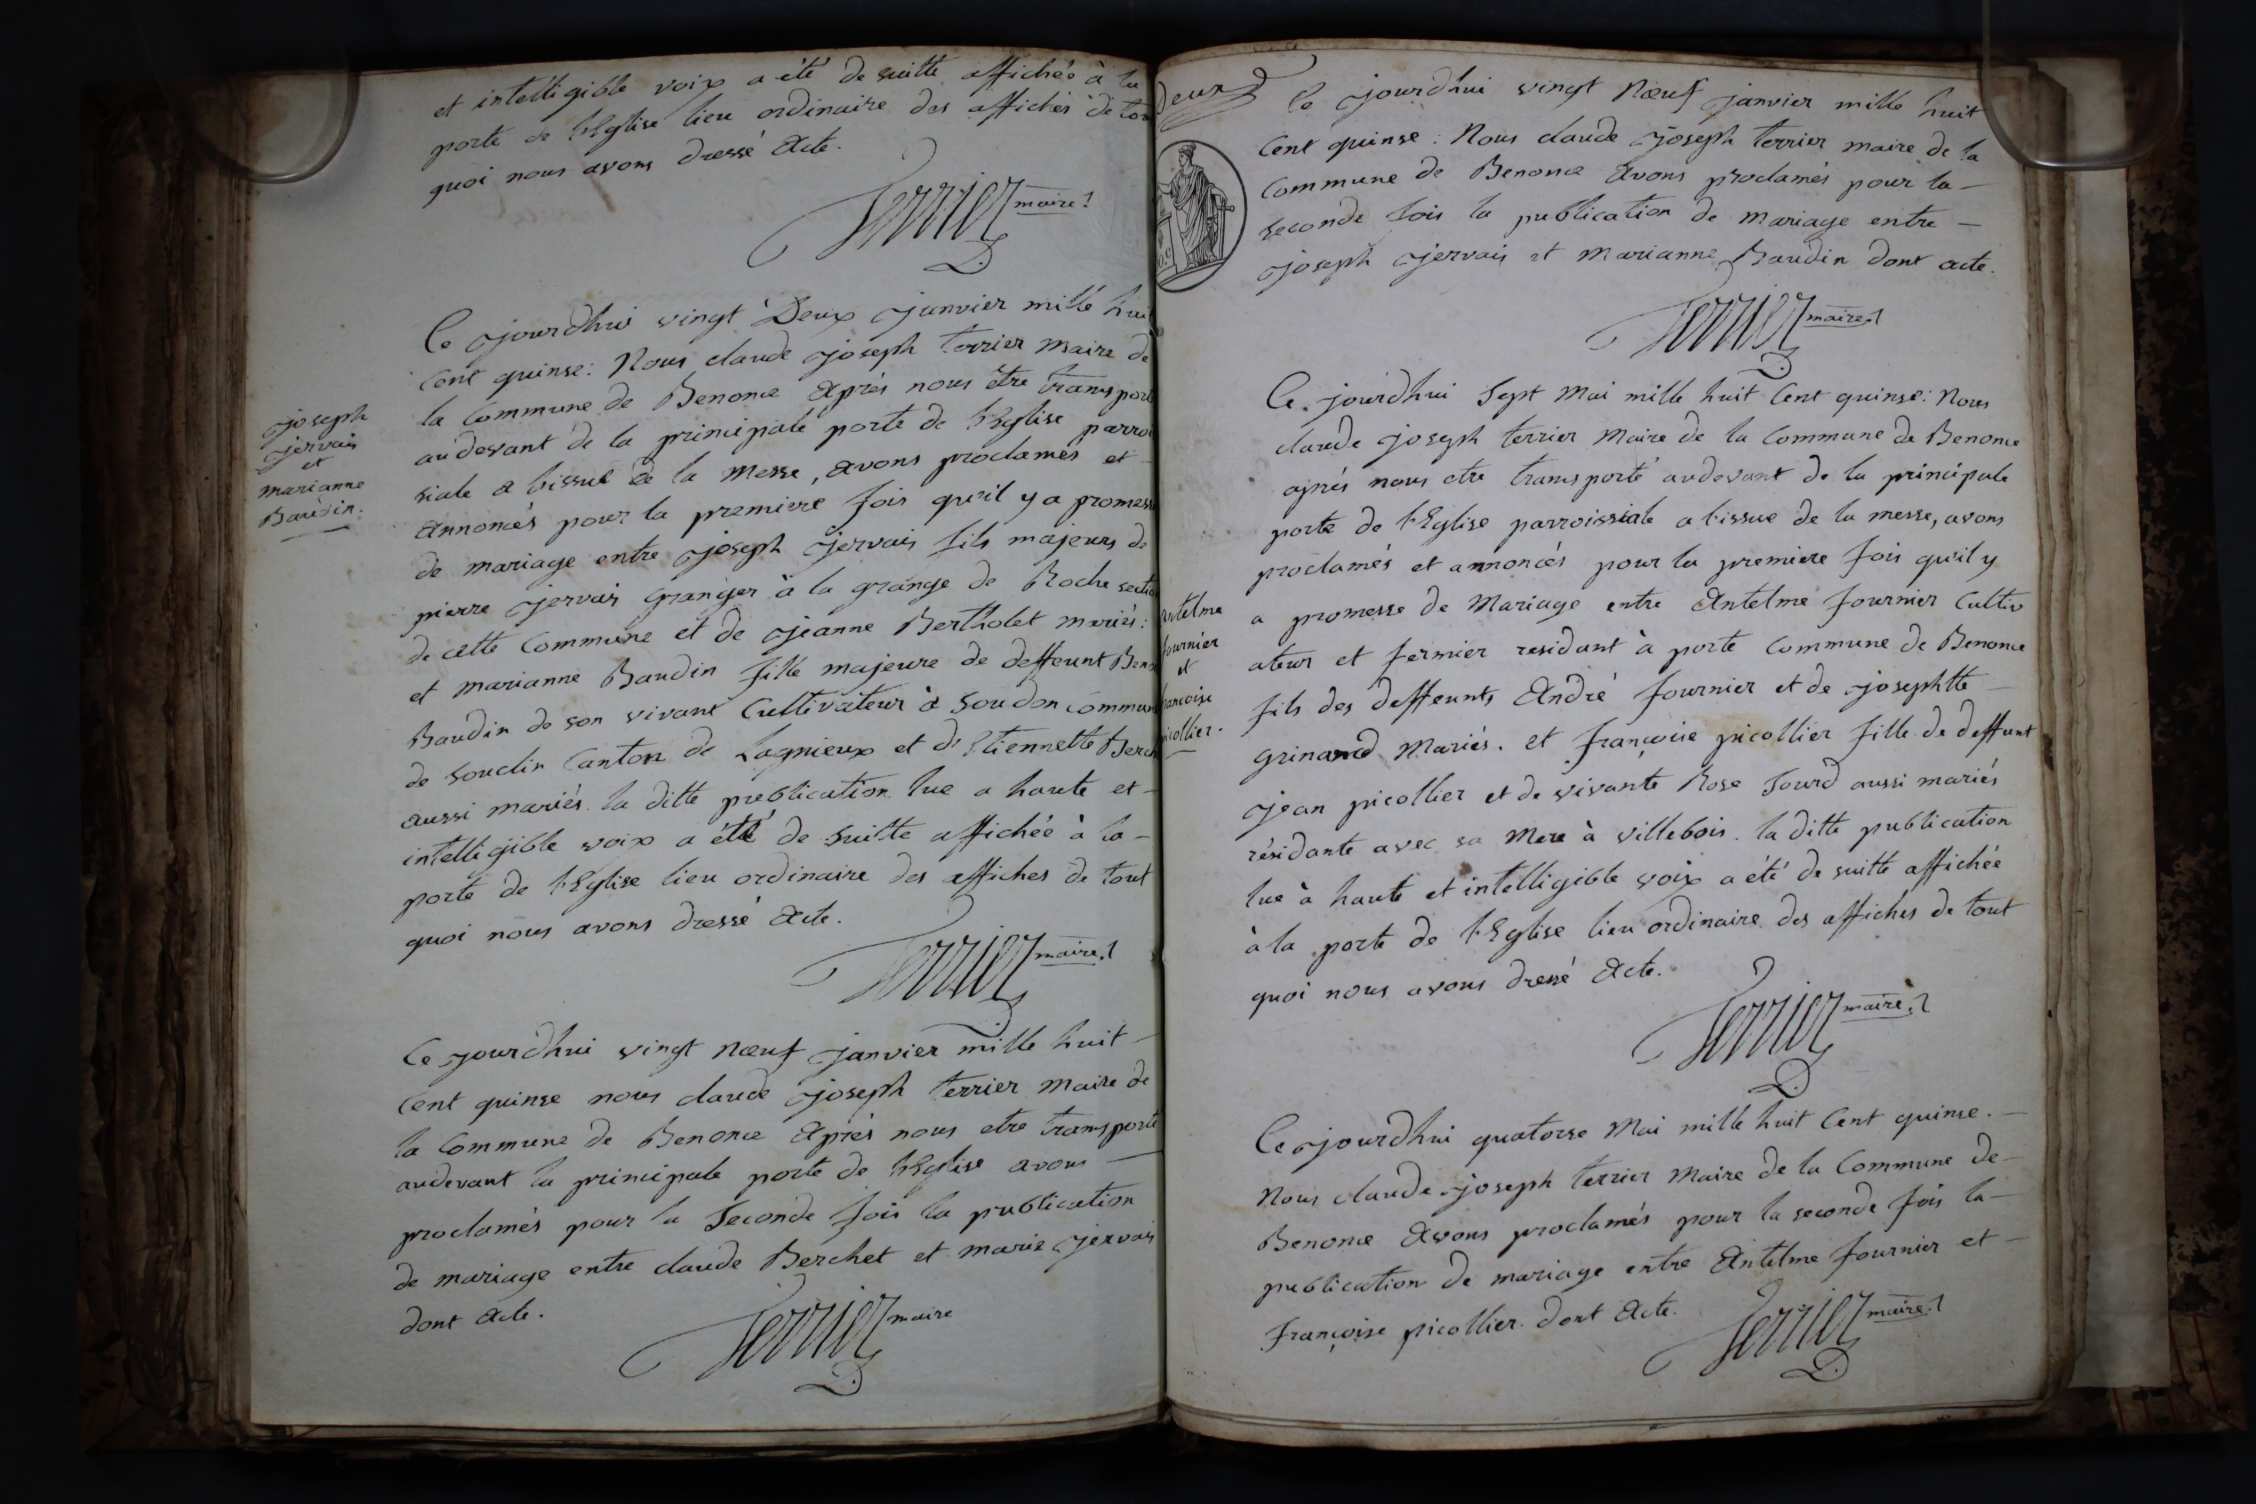 et intélligible voix a été de suitte affichée à la
porte de l'Eglise lieu ordinaire des affiches de tou
quoi nous avons dressé Acte.
Terrier maire
Ce jourdhui vingt Deux janvier mille hui
Cent quinse: Nous claude joseph terrier Maire de
la Commune de Benonce Après nous être transport
audevant de la principale porte de l'Eglise parroi
siale a l'issue de la Messe, avons proclamés et
Annoncés pour la premiere fois qu'il y a promess
de mariage entre joseph jervais fils majeurs de
pierre jervais Granger à la grange de Roche sectio
de cette Commune et de jeanne Bertholet mariés:
et marianne Baudin fille majeure de deffeunt Beno
Baudin de son vivant Cultivateur à Soudon commun
de Souclin Canton de Lagnieux et de Etiennette Berch
aussi mariés. la ditte preblication lue a haute et -
intelligible voix a été de Suitte affichée à la -
porte de l'Eglise lieu ordinaire des affiches de tout
quoi nous avons dressé Acte.
Terrier maire
joseph
jervais
et
marianne
Baudin.
Ce jourdhui vingt nœuf janvier mille huit -
Cent quinse nous claude joseph terrier Maire de
la Commune de Benonce Après nous etre transporté
audevant la principale porte de l'Eglise avons —
proclamés pour la Seconde fois la publication
de mariage entre claude Berchet et marie jervais
dont Acte.
Terrier maire
Deux
Ce jourdhui vingt Nœuf janvier mille huit
Cent quinse: Nous claude joseph terrier maire de la
Commune de Benonce Avons proclamés pour la -
seconde fois la publication de mariage entre -
joseph jervais et Marianne Baudin dont acte.
Terrier maire
Ce jourdhui Sept Mai mille huit Cent quinse: Nous
claude joseph terrier Maire de la Commune de Benonce
après nous etre transporté audevant de la principale
porte de l'Eglise parroissiale a l'issue de la messe, avons
proclamés et annoncés pour la premiere fois qu'il y
a promesse de Mariage entre Antelme fournier Cultiv
ateur et fermier residant à porte Commune de Benonce
fils des deffeunts André fournier et de josephtte -
Grinand Mariés. et françoise picollier fille de deffunt
jean picollier et de vivante Rose Jourd aussi mariés
résidante avec sa Mere à villebois. la ditte publication
lue à haute et intelligible voix a été de suitte affichée
à la porte de l'Eglise lieu ordinaire des affiches de tout
quoi nous avons dressé Acte.
Terrier maire
antelme
fournier
et
françoise
picollier.
Ce jourdhui quatorse Mai mille huit Cent quinse. -
Nous claude joseph terrier Maire de la Commune de -
Benonce Avons proclamés pour la seconde fois la -
publication de mariage entre Antelme fournier et -
françoise picollier. Dont Acte.
Terrier maire